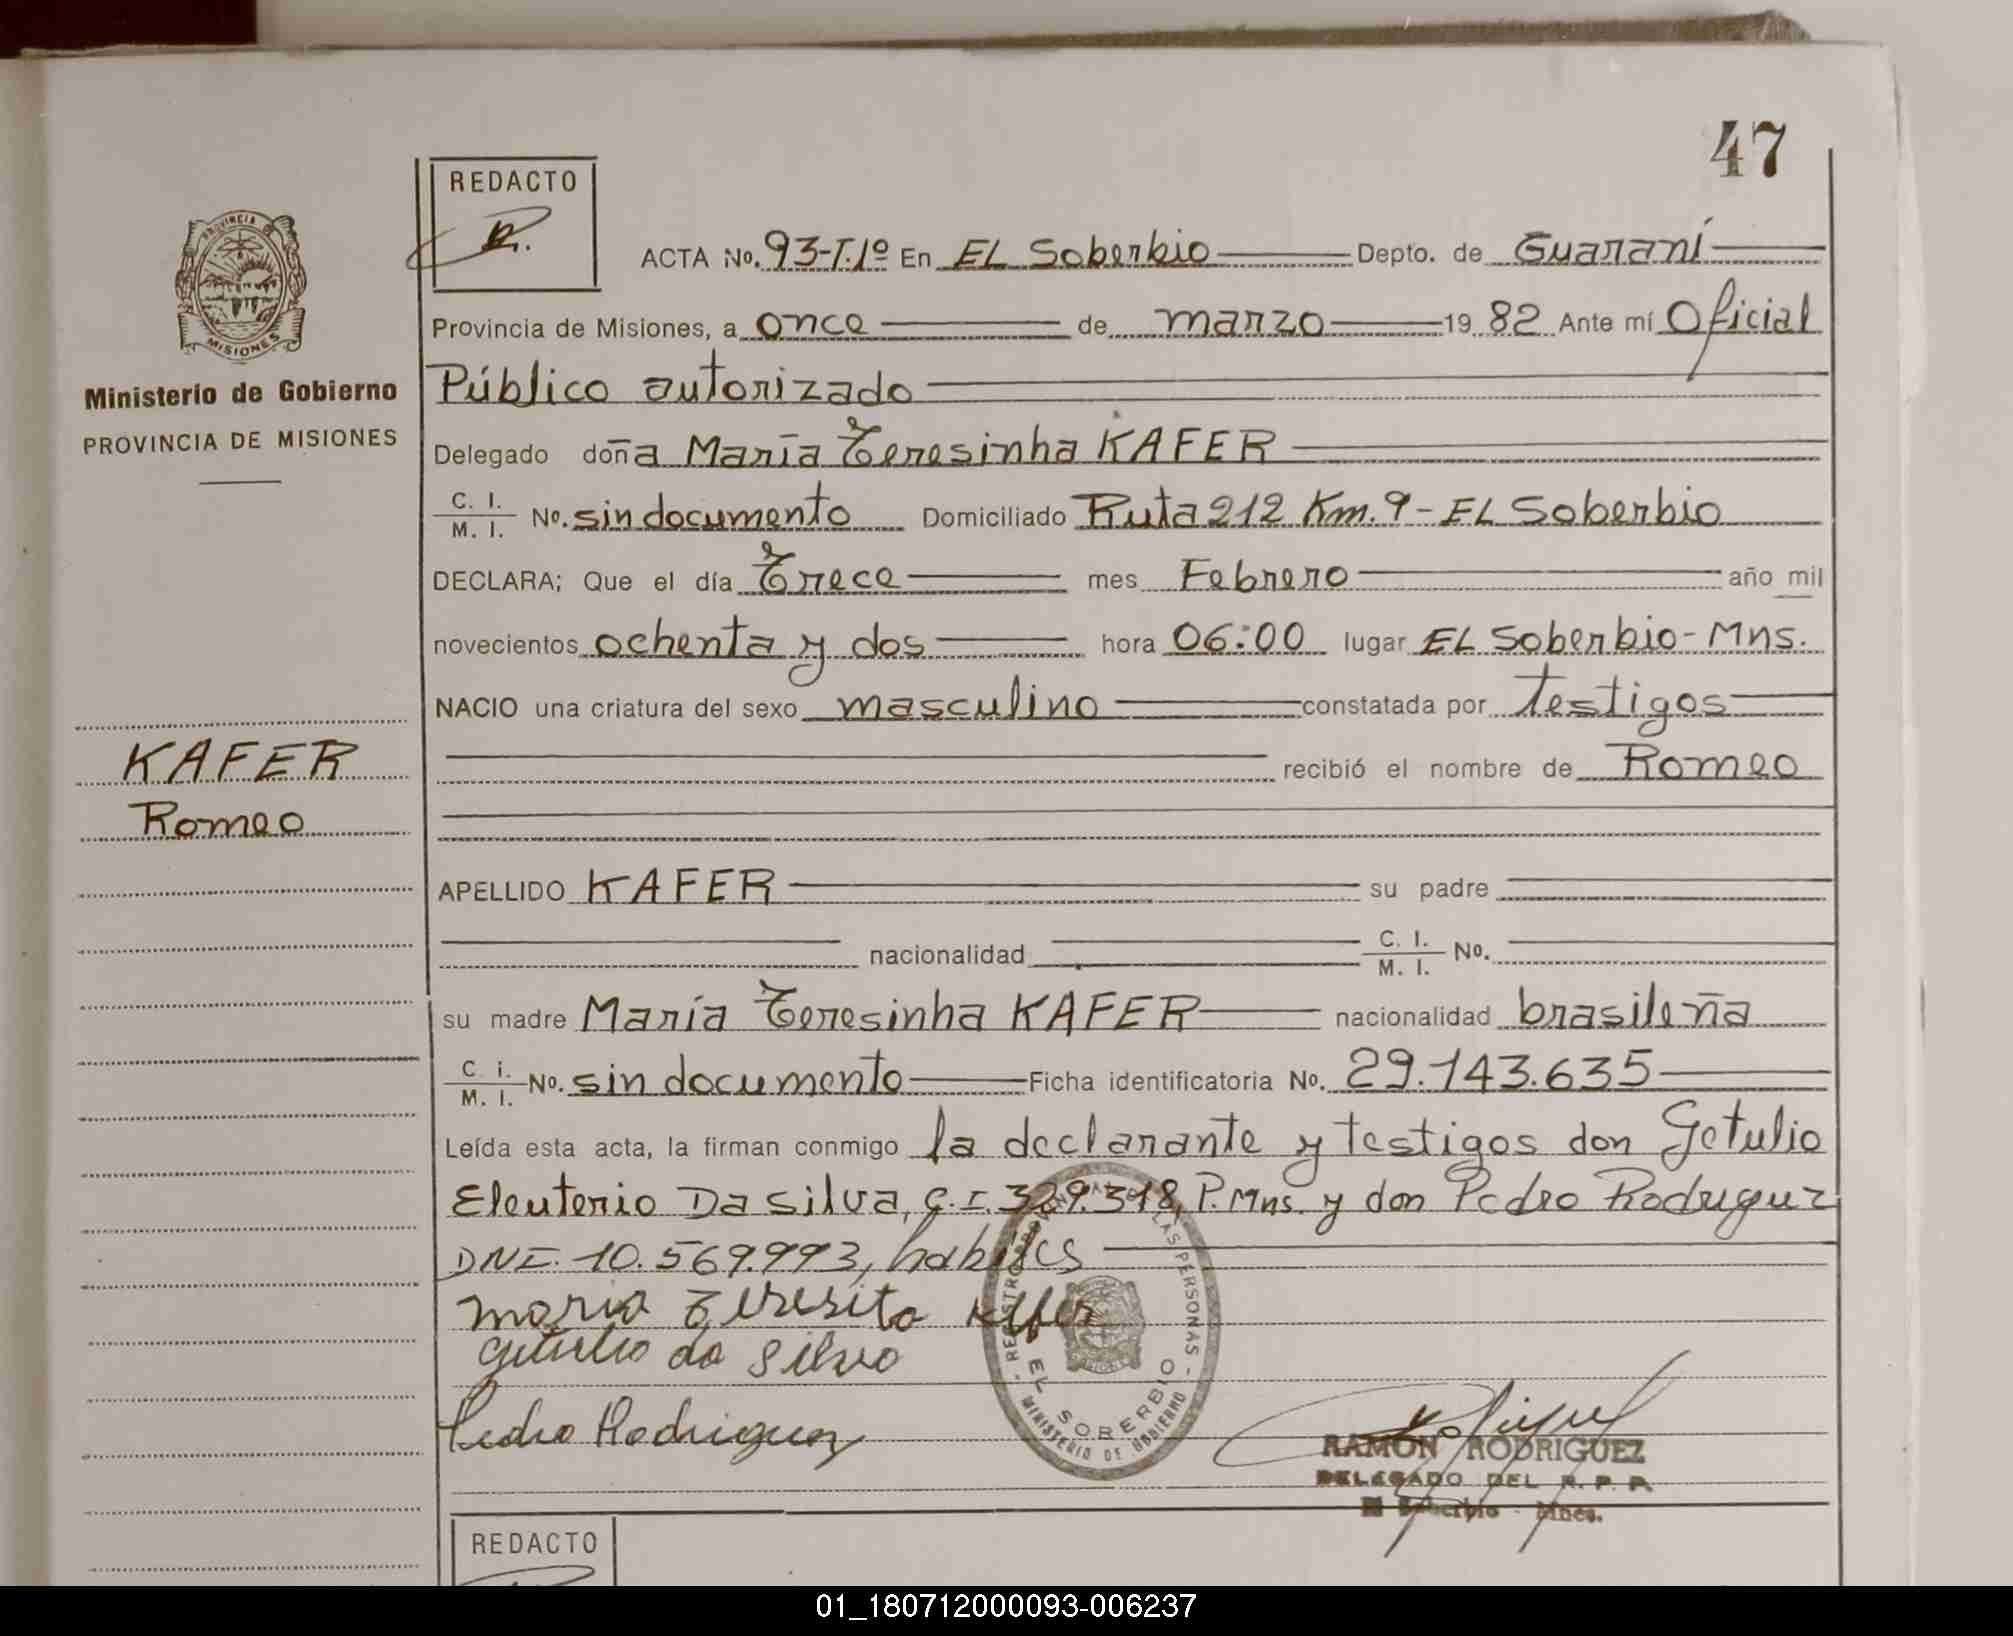 47
REDACTO
R.
PROVINCIA DE
MISIONES
Ministerio de Gobierno
PROVINCIA DE MISIONES
ACTA No. 93-T.1º En EL Soberbio Depto. de Guaraní
Provincia de Misiones, a once de marzo 19 82 Ante mí Oficial
Público autorizado
Delegado doña María Teresinha KAFER
C. I. / M. I. No. sin documento Domiciliado Ruta 212 Km. 9 - EL Soberbio
DECLARA; Que el día Trece mes Febrero año mil
novecientos ochenta y dos hora 06:00 lugar EL Soberbio - Mns.
NACIO una criatura del sexo masculino constatada por Testigos
recibió el nombre de Romeo
KAFER
Romeo
APELLIDO KAFER su padre
nacionalidad C. I. / M. I. No.
su madre María Teresinha KAFER nacionalidad brasileña
C. i. / M. I. No. sin documento Ficha identificatoria No. 29.143.635
Leída esta acta, la firman conmigo la declarante y testigos don Getulio
Eleuterio Da silva, C.I. 329.318, P. Mns. y don Pedro Rodriguez
DNI. 10.569.993, habiles
maria Teresita Kafer
Getulio da Silva
Pedro Rodriguez
REGISTRO PROVINCIAL DE LAS PERSONAS
EL SOBERBIO
MINISTERIO DE GOBIERNO
RAMON RODRIGUEZ
DELEGADO DEL R. P. P.
El Soberbio - Mnes.
REDACTO
01_180712000093-006237